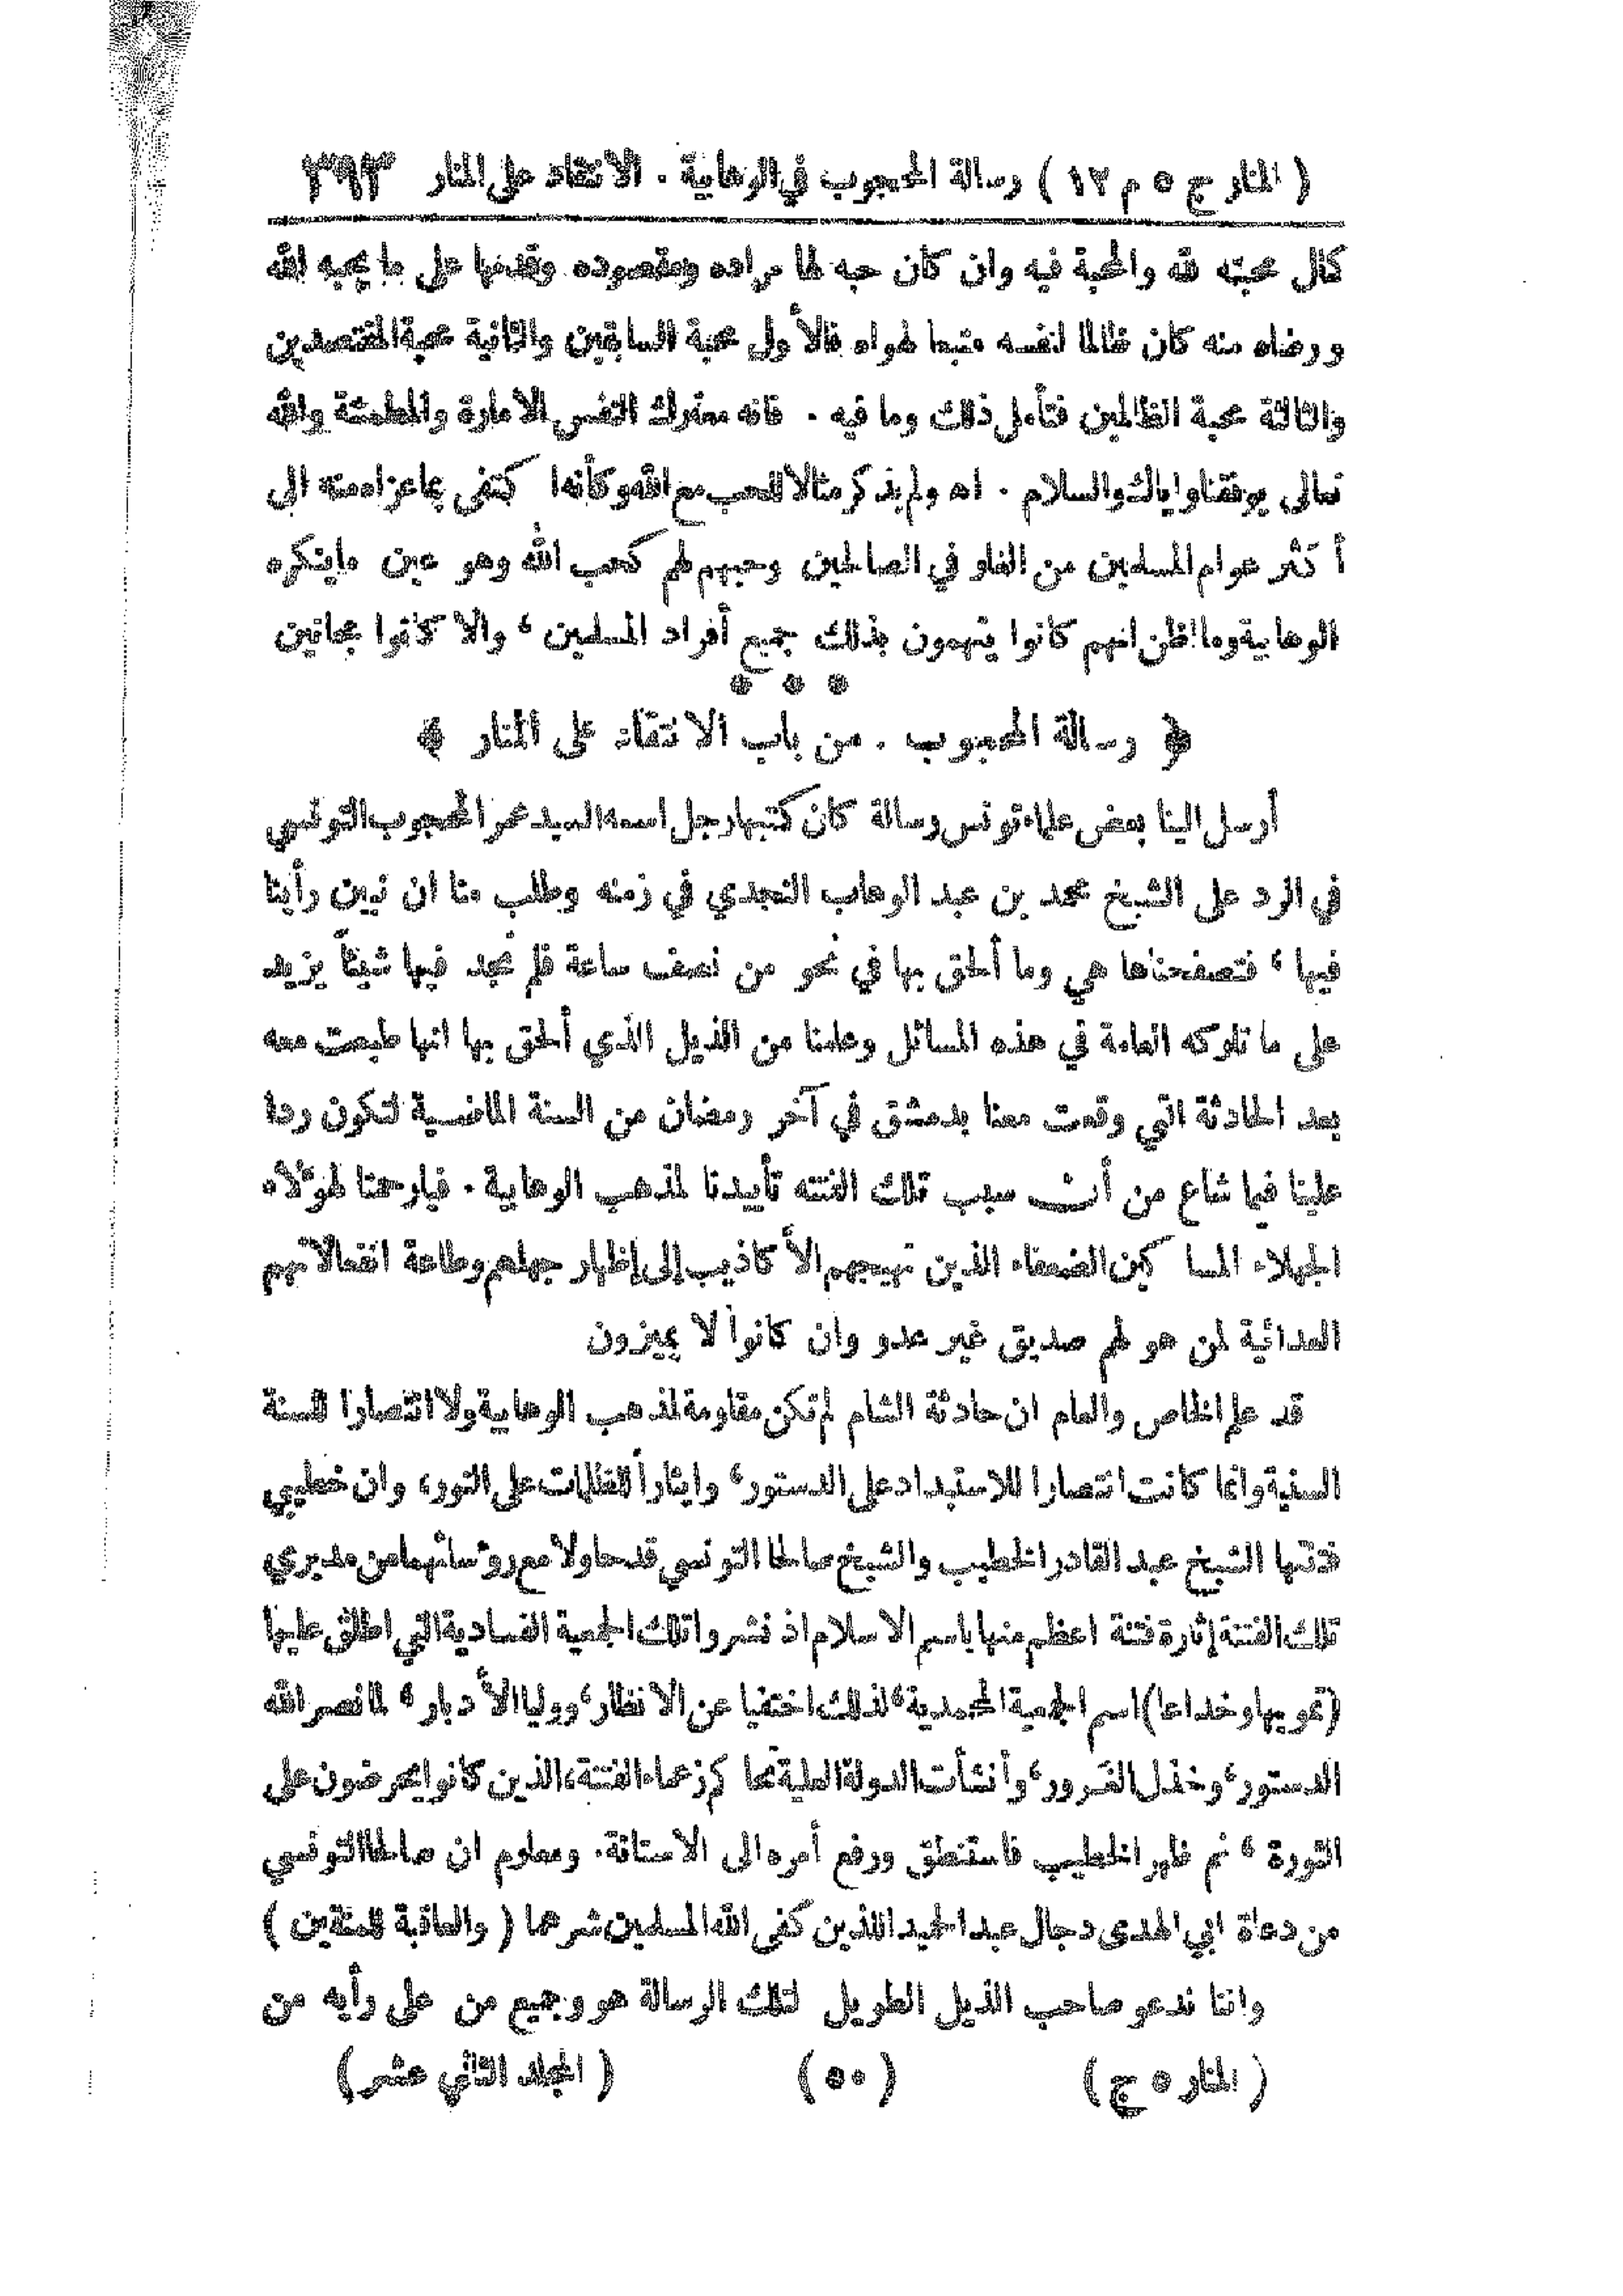 ( المنار ج ٥ م ١٢ ) رسالة المحجوب في الوهابية . الانتقاد على المنار ٣٩٣
كمال محبته لله والمحبة فيه وان كان حبه لها مراده ومقصوده وقدمها على ما يحبه الله
ورضاه منه كان ظالما لنفسه متبعا لهواه فالأولى محبة السابقين والثانية محبة المقتصدين
والثالثة محبة الظالمين فتأمل ذلك وما فيه . فانه معترك النفس الامارة والمطمئنة والله
تعالى يوفقنا واياك والسلام . اه ولم يذكر مثالا للحب مع الله وكأنه اكتفى بما عزاه منه الى
أكثر عوام المسلمين من الغلو في الصالحين وحبهم لهم كحب الله وهو عين ما ينكره
الوهابية وما اظن انهم كانوا يتهمون بذلك جميع أفراد المسلمين ، والا كانوا مجانين
* * *
﴿ رسالة المحجوب . من باب الانتقاد على المنار ﴾
أرسل الينا بعض علماء تونس رسالة كان كتبها رجل اسمه السيد عمر المحجوب التونسي
في الرد على الشيخ محمد بن عبد الوهاب النجدي في زمنه وطلب منا ان نبين رأينا
فيها ، فتصفحناها هي وما ألحق بها في نحو من نصف ساعة فلم نجد فيها شيئاً يزيد
على ما تلوكه العامة في هذه المسائل وعلمنا من الذيل الذي ألحق بها انها طبعت معه
بعد الحادثة التي وقعت معنا بدمشق في آخر رمضان من السنة الماضية لتكون ردا
علينا فيما شاع من أن سبب تلك الفتنه تأييدنا لمذهب الوهابية . فيارحمتا لهؤلاء
الجهلاء المساكين الضعفاء الذين تهيجهم الأكاذيب إلى إظهار جهلهم وطاعة انفعالاتهم
العدائية لمن هو لهم صديق غير عدو وان كانوا لا يميزون
قد علم الخاص والعام ان حادثة الشام لم تكن مقاومة لمذهب الوهابية ولا انتصارا للسنة
السنية وانما كانت انتصارا للاستبداد على الدستور ، وايثاراً للظلمات على النور ، وان خطيبي
فتنتها الشيخ عبد القادر الخطيب والشيخ صالحا التونسي قد حاولا مع رؤسائهما من مديري
تلك الفتنة إثارة فتنة اعظم منها باسم الاسلام اذ نشروا تلك الجمعية الفسادية التي اطلق عليها
(تمويها وخداعا) اسم الجمعية المحمدية ، لذلك اختفيا عن الانظار ، ووليا الأدبار ، لما نصر الله
الدستور ، وخذل الغرور ، وأنشأت الدولة العلية تحاكم زعماء الفتنة ، الذين كانوا يحرضون على
الثورة ، ثم ظهر الخطيب فاستنطق ورفع أمره الى الاستانة . ومعلوم ان صالحا التونسي
من دعاة ابي الهدى دجال عبد الحميد اللذين كفى الله المسلمين شرهما ( والعاقبة للمتقين )
واننا ندعو صاحب الذيل الطويل لتلك الرسالة هو وجميع من على رأيه من
( المنار ٥ ج ) ( ٥٠ ) ( المجلد الثاني عشر )